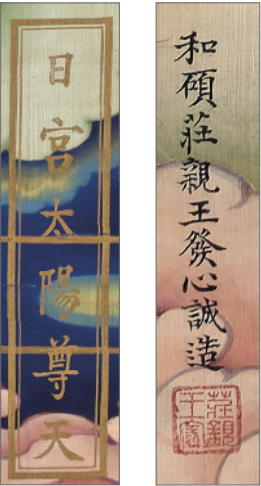 日宮太陽尊天
和碩莊親王發心誠造
莊親王寶